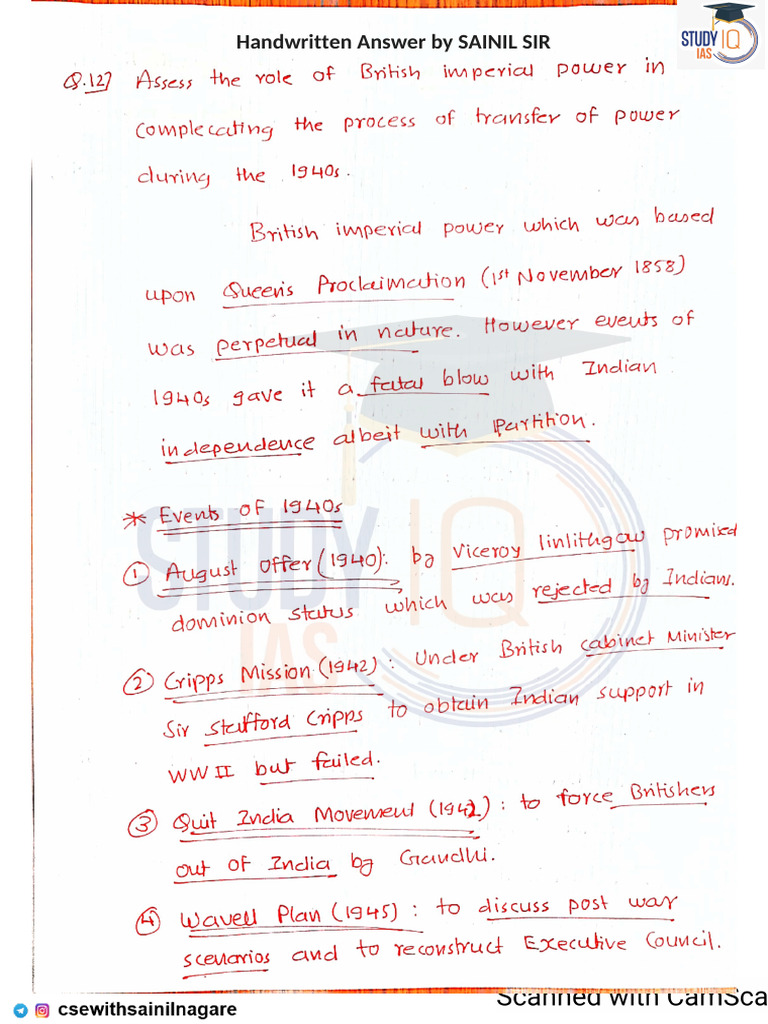 Handwritten Answer by SAINIL SIR
STUDY IQ
IAS
Q.12) Assess the role of British imperial power in
complecating the process of transfer of power
during the 1940s.
British imperial power which was based
upon Queen's Proclaimation (1st November 1858)
was perpetual in nature. However events of
1940s gave it a fatal blow with Indian
independence albeit with Partition.
* Events of 1940s
① August offer (1940): by Viceroy linlithgow promised
dominion status which was rejected by Indians.
② Cripps Mission (1942): Under British cabinet Minister
Sir Stafford Cripps to obtain Indian support in
WW II but failed.
③ Quit India Movement (1942): to force Britishers
out of India by Gandhi.
④ Wavell Plan (1945): to discuss post war
scenarios and to reconstruct Executive Council.
STUDY IQ
IAS
csewithsainilnagare
Scanned with CamSca